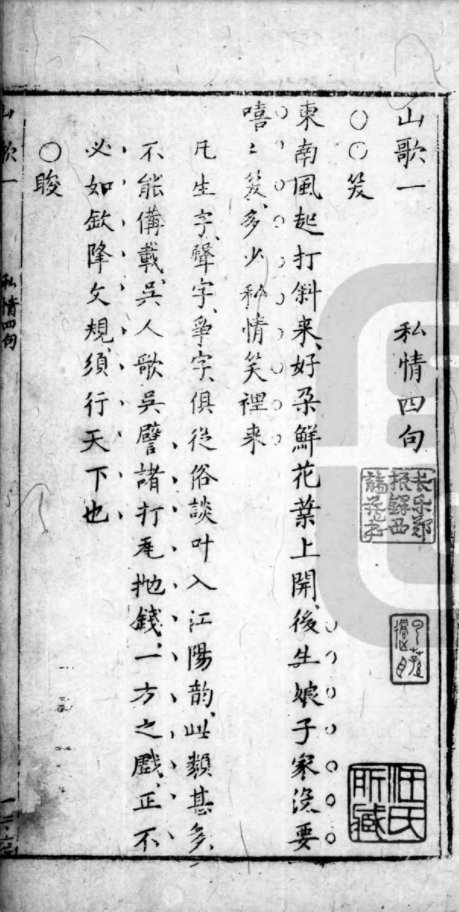 山歌一　私情四句
○○笑
東南風起打斜来、好朵鮮花葉上開、後生娘子家沒要
嘻〻笑、多少私情笑裡来
凡生字、聲字、爭字、俱従俗談叶入江陽韵、此類甚多、
不能備載、吳人歌吳、譬諸打瓦抛錢、一方之戲、正不
必如欽降文規、須行天下也
○睃
山歌一　私情四句
長樂鄭振鐸西諦藏書
汪氏所藏